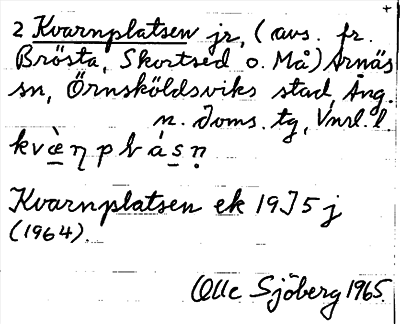 +
2 Kvarnplatsen jr, (avs. fr.
Brösta, Skortsed o. Må) Arnäs
sn, Örnsköldsviks stad, Ång.
n. doms. tg, Vnrl. l.
kvæ̀ŋplàsṇ
Kvarnplatsen ek 19J5j
(1964).
Olle Sjöberg 1965